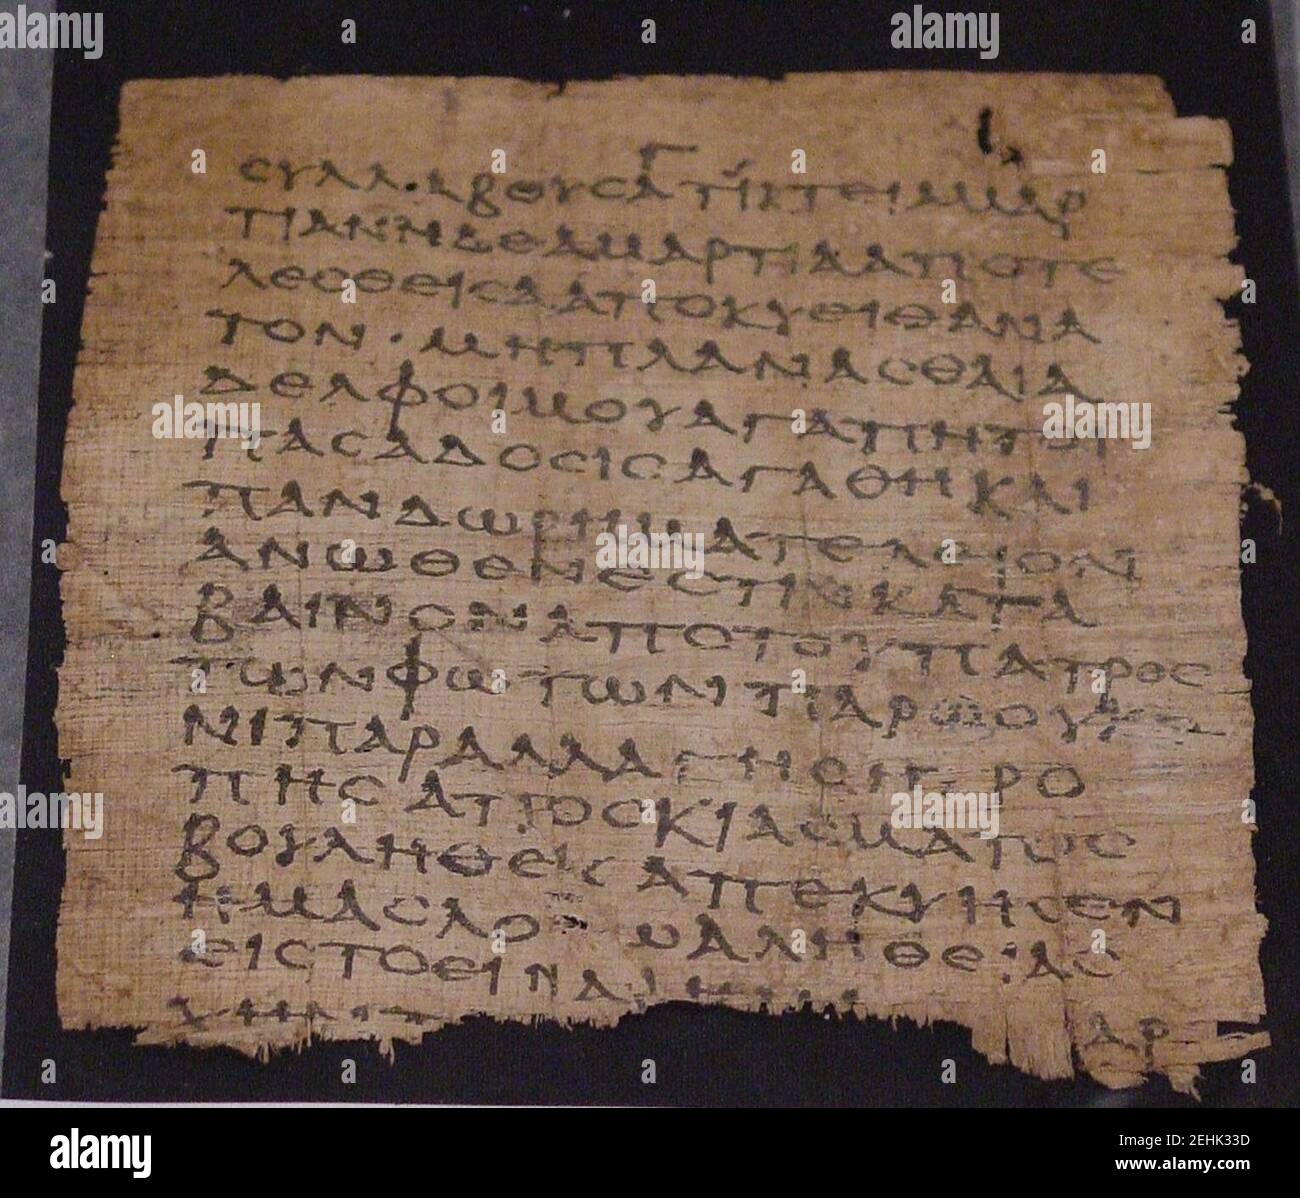 Γ
ϹΥΛΛ·ΑΒΟΥϹΑΤΙΚΤΕΙΑΜΑΡ
ΤΙΑΝΗΔΕΑΜΑΡΤΙΑΑΠΟΤΕ
ΛΕϹΘΕΙϹΑΑΠΟΚΥΕΙΘΑΝΑ
ΤΟΝ·ΜΗΠΛΑΝΑϹΘΑΙΑ
ΔΕΛΦΟΙΜΟΥΑΓΑΠΗΤΟΙ
ΠΑϹΑΔΟϹΙϹΑΓΑΘΗΚΑΙ
ΠΑΝΔΩΡΗΜΑΤΕΛΕΙΟΝ
ΑΝΩΘΕΝΕϹΤΙΝΚΑΤΑ
ΒΑΙΝΟΝΑΠΟΤΟΥΠΑΤΡΟϹ
ΤΩΝΦΩΤΩΝΠΑΡΩΟΥΚΕ
ΝΙΠΑΡΑΛΛΑΓΗϹΗΤΡΟ
ΠΗϹΑΠΟϹΚΙΑϹΜΑΤΟϹ
ΒΟΥΛΗΘΕΙϹΑΠΕΚΥΗϹΕΝ
ΗΜΑϹΛΟ ΥΑΛΗΘΕΙΑϹ
ΕΙϹΤΟΕΙΝΑΙ
ΑΡ
alamy
www.alamy.com
Image ID: 2EHK33D